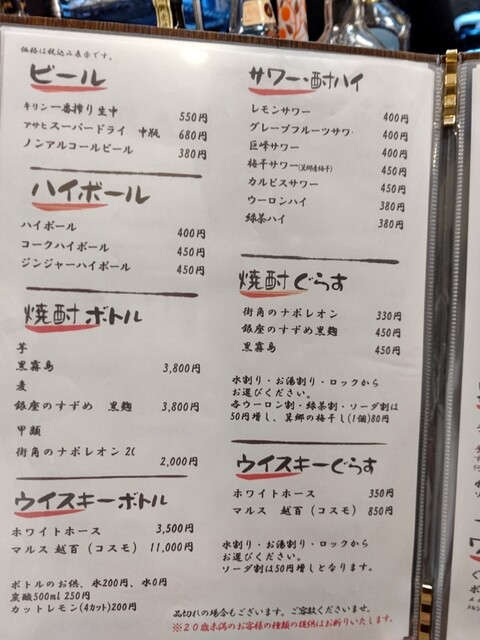 価格は税込み表示です。
ビール
キリン一番搾り生中 550円
アサヒスーパードライ 中瓶 680円
ノンアルコールビール 380円
ハイボール
ハイボール 400円
コークハイボール 450円
ジンジャーハイボール 450円
焼酎ボトル
芋
黒霧島 3,800円
麦
銀座のすずめ 黒麹 3,800円
甲類
街角のナポレオン 2ℓ
2,000円
ウイスキーボトル
ホワイトホース 3,500円
マルス 越百(コスモ) 11,000円
ボトルのお供、氷200円、水0円
炭酸500ml 250円
カットレモン(4カット)200円
サワー・酎ハイ
レモンサワー 400円
グレープフルーツサワ 400円
巨峰サワー 400円
梅干サワー(箕郷産梅干) 450円
カルピスサワー 450円
ウーロンハイ 380円
緑茶ハイ 380円
焼酎ぐらす
街角のナポレオン 330円
銀座のすずめ黒麹 450円
黒霧島 450円
水割り・お湯割り・ロックから
お選びください。
各ウーロン割・緑茶割・ソーダ割は
50円増し、箕郷の梅干し(1個)80円
ウイスキーぐらす
ホワイトホース 350円
マルス 越百(コスモ) 850円
水割り・お湯割り・ロックから
お選びください。
ソーダ割は50円増しとなります。
品切れの場合もございます。ご容赦くださいませ。
※20歳未満のお客様の酒類の提供はお断りいたします。